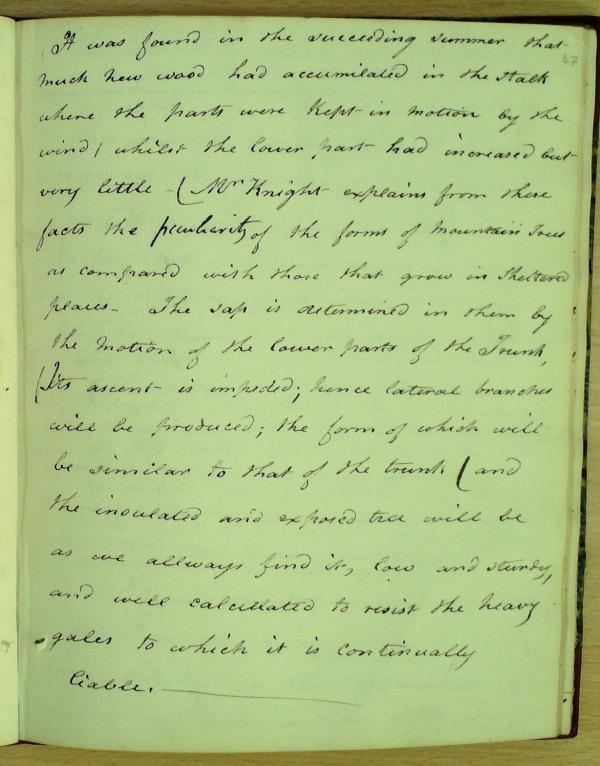 It was found in the succeeding summer that
47
much new wood had accumilated in the stalk
where the parts were Kept in motion by the
wind; whilst the lower part had increased but
very little - (Mr Knight explains from these
facts the peculiarity of the forms of Mountain Trees
as compared with those that grow in sheltered
places - The sap is determined in them by
the motion of the lower parts of the Trunk,
(Its ascent is impeded; hence lateral branches
will be produced; the form of which will
be similar to that of the trunk (and
the insulated and exposed tree will be
as we allways find it, low and sturdy,
and well calculated to resist the heavy
gales to which it is continually
liable.